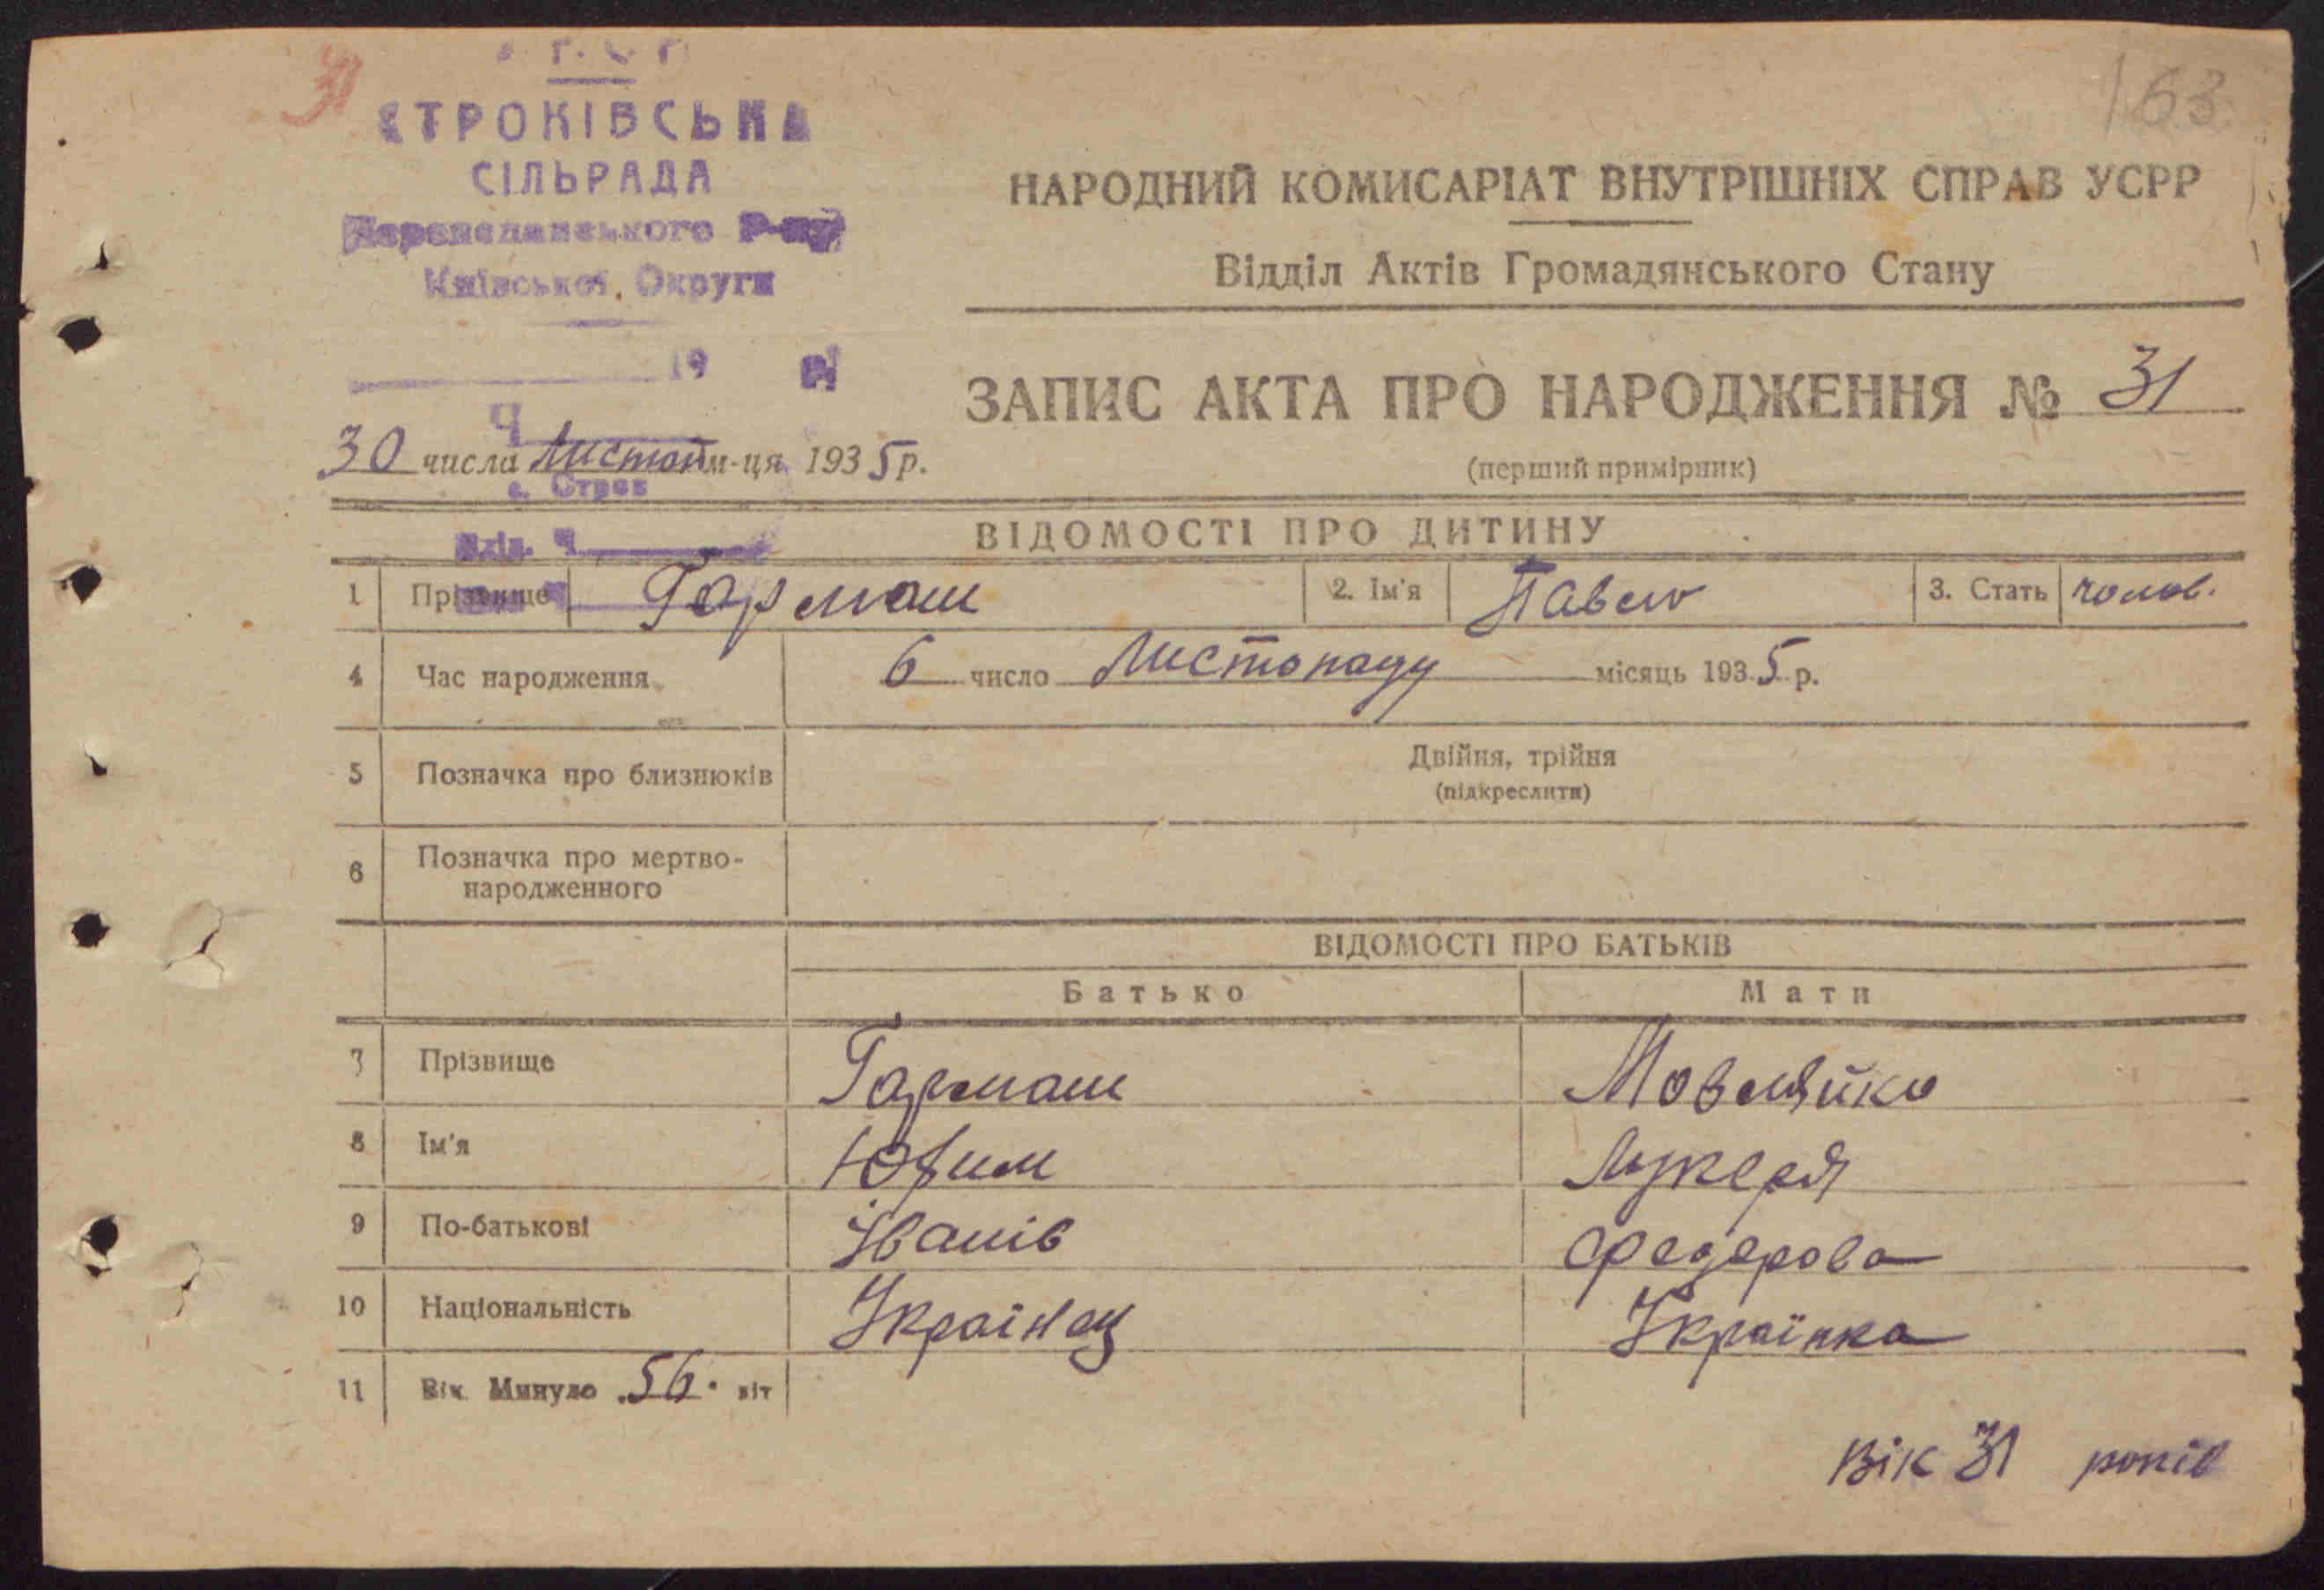 163
СТРОКІВСЬКА
СІЛЬРАДА
Київської Округи
19
Ч
НАРОДНИЙ КОМИСАРІАТ ВНУТРІШНІХ СПРАВ УСРР
Відділ Актів Громадянського Стану
ЗАПИС АКТА ПРО НАРОДЖЕННЯ № 31
(перший примірник)
30 числа Листоп м-ця 1935 р.
ВІДОМОСТІ ПРО ДИТИНУ
1 Прізвище Гармаш 2. Ім'я Павло 3. Стать чолов.
4 Час народження 6 число Листопаду місяць 1935 р.
5 Позначка про близнюків Двійня, трійня
(підкреслити)
6 Позначка про мертво-
народженного
ВІДОМОСТІ ПРО БАТЬКІВ
Батько Мати
7 Прізвище Гармаш
8 Ім'я Юхим Лукеря
9 По-батькові Іванів Федорова
10 Національність Українец Українка
11 Вік. Минуло 56. літ
Вік 31 років